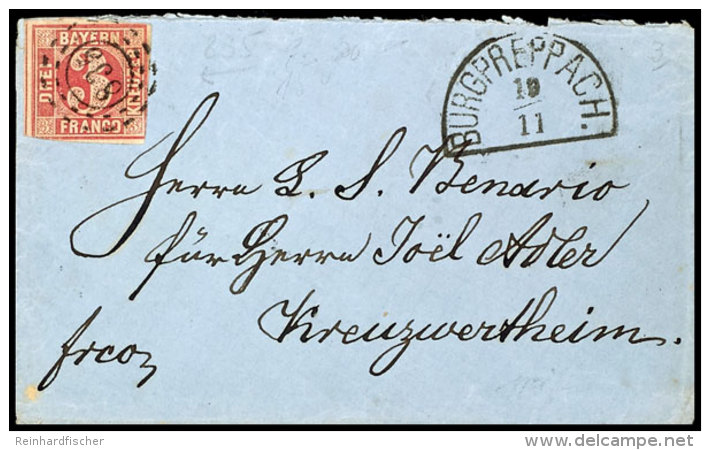 BAYERN
DREI
3
KREUZER
FRANCO
BURGPREPPACH.
19
11
Herrn L. S. Benario
für Herrn Joël Adler
Kreuzwertheim.
frco
Reinhardfischer
delcampe.net